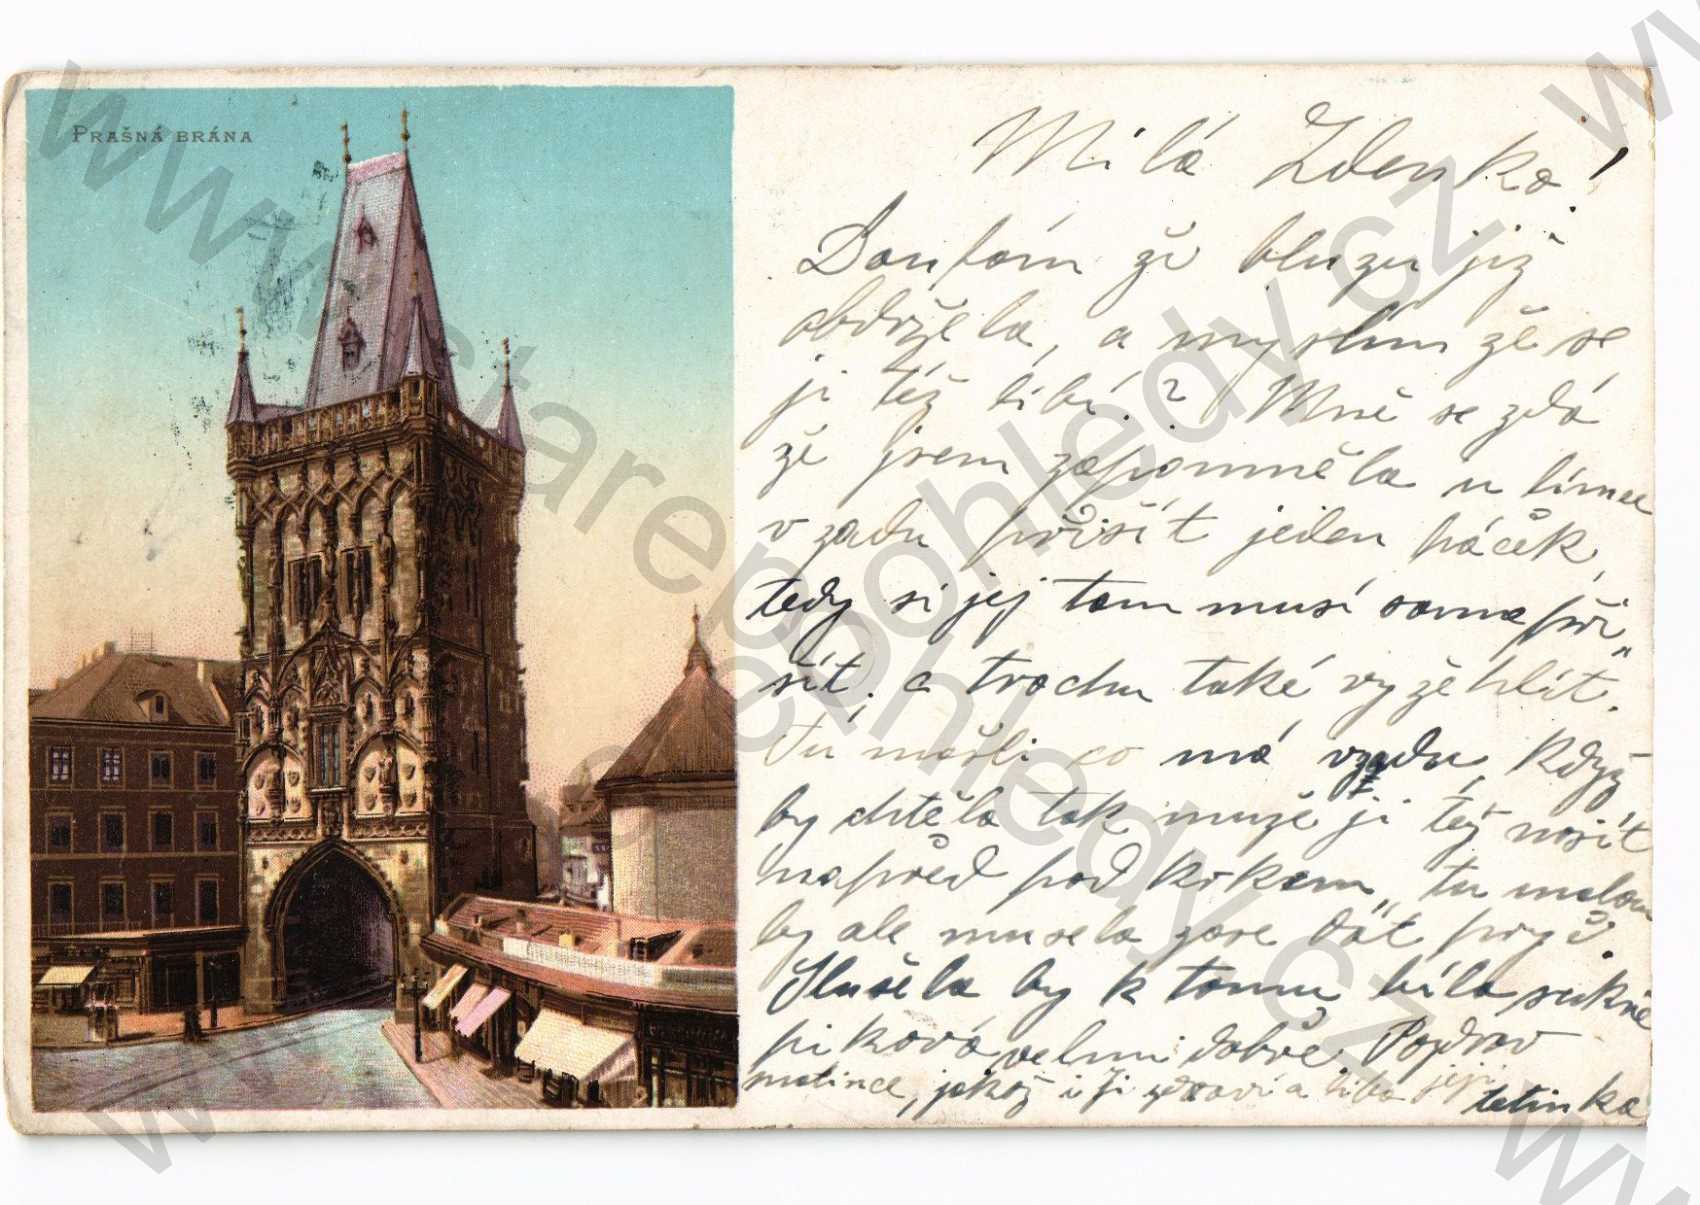 PRAŠNÁ BRÁNA
Milá Zdenko!
Doufám že bluzu již
obdržela, a myslím že se
ji též líbí.? Mně se zdá
že jsem zapomněla u límce
vzadu přišít jeden háček,
tedy si jej tam musí sama při„
šít. a trochu také vyžehlit.
Tu mašli co má vzadu, když
by chtěla tak muže ji též nosit
napřed pod krkem, tu malou
by ale musela zase dát pryč.
Slušela by k tomu bílá sukně
piková velmi dobře. Pozdrav
matince, jakož i Ji zdraví a líbá její
tetinka
www.starepohledy.cz